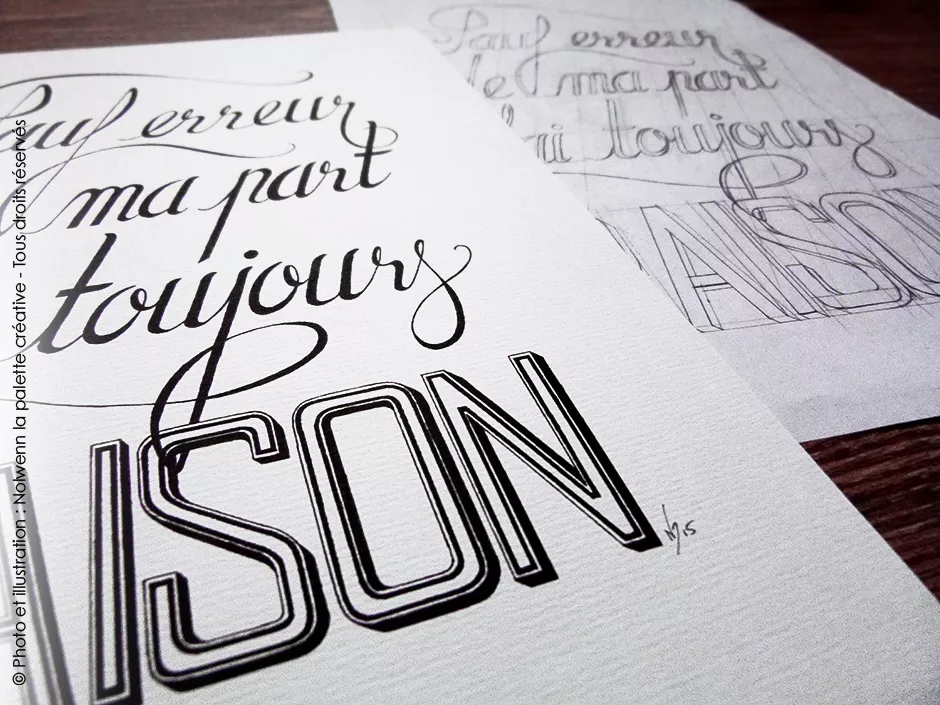 Sauf erreur
ma part
toujours
AISON
N 15
Sauf erreur
de ma part
j'ai toujours
AISON
© Photo et illustration : Nolwenn la palette créative - Tous droits réservés